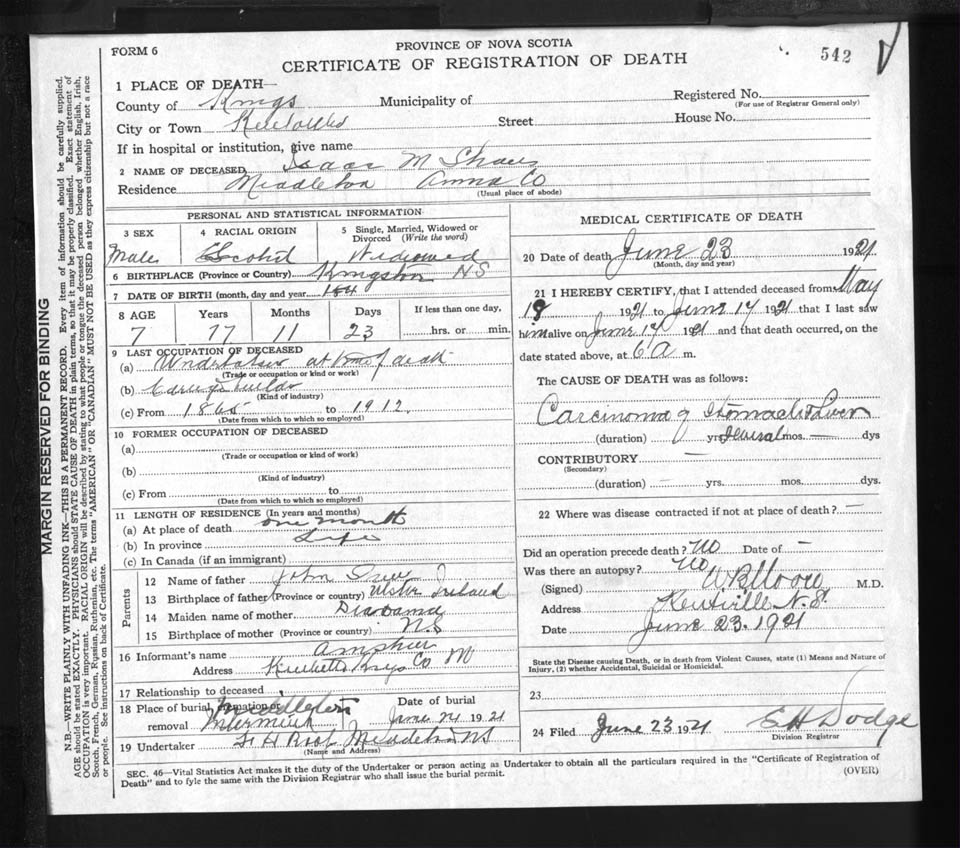 FORM 6
PROVINCE OF NOVA SCOTIA
CERTIFICATE OF REGISTRATION OF DEATH
542
1 PLACE OF DEATH—
County of Kings Municipality of
Registered No.
(For use of Registrar General only)
City or Town Street House No.
If in hospital or institution, give name
2 NAME OF DECEASED Isaac M
Residence Middleton Anna Co
(Usual place of abode)
PERSONAL AND STATISTICAL INFORMATION
3 SEX 4 RACIAL ORIGIN 5 Single, Married, Widowed or Divorced (Write the word)
Male Widowed
6 BIRTHPLACE (Province or Country) Kingston NS
7 DATE OF BIRTH (month, day and year
8 AGE Years Months Days If less than one day,
7 77 11 23 hrs. or min.
9 LAST OCCUPATION OF DECEASED
(a) Undertaker at time of death
(Trade or occupation or kind or work)
(b)
(Kind of industry)
(c) From 1865 to 1912
(Date from which to which so employed)
10 FORMER OCCUPATION OF DECEASED
(a)
(Trade or occupation or kind of work)
(b)
(Kind of industry)
(c) From to
(Date from which to which so employed)
11 LENGTH OF RESIDENCE (In years and months)
(a) At place of death one month
(b) In province Life
(c) In Canada (if an immigrant)
Parents
12 Name of father John
13 Birthplace of father (Province or country) Ulster Ireland
14 Maiden name of mother
15 Birthplace of mother (Province or country) N.S
16 Informant's name
Address Co
17 Relationship to deceased
18 Place of burial, cremation or removal Middleton
Date of burial June 24 1921
19 Undertaker Middleton NS
(Name and Address)
MEDICAL CERTIFICATE OF DEATH
20 Date of death June 23 1921
(Month, day and year)
21 I HEREBY CERTIFY, that I attended deceased from May
19 1921 to June 17 1921 that I last saw
him alive on June 17 1921 and that death occurred, on
date stated above, at 6 A m.
The CAUSE OF DEATH was as follows:
Carcinoma of Stomach & Liver
(duration) yrs. several mos. — dys
CONTRIBUTORY —
(Secondary)
(duration) — yrs. mos. dys.
22 Where was disease contracted if not at place of death? —
Did an operation precede death? No Date of —
Was there an autopsy? No
(Signed) M.D.
Address Kentville N.S.
Date June 23. 1921
State the Disease causing Death, or in death from Violent Causes, state (1) Means and Nature of
Injury, (2) whether Accidental, Suicidal or Homicidal.
23
24 Filed June 23 1921 E H Dodge
Division Registrar
SEC. 46—Vital Statistics Act makes it the duty of the Undertaker or person acting as Undertaker to obtain all the particulars required in the "Certificate of Registration of
Death" and to fyle the same with the Division Registrar who shall issue the burial permit.
(OVER)
MARGIN RESERVED FOR BINDING
N.B.—WRITE PLAINLY WITH UNFADING INK—THIS IS A PERMANENT RECORD. Every item of information should be carefully supplied.
AGE should be stated EXACTLY. PHYSICIANS should STATE CAUSE OF DEATH in plain terms, so that it may be properly classified. Exact statement of
OCCUPATION is very important. RACIAL ORIGIN will be described by stating to what people or tongue the deceased person belonged whether English, Irish,
Scotch, French, German, Russian, Ruthenian, etc. The terms "AMERICAN" OR "CANADIAN" MUST NOT BE USED as they express citizenship but not a race
or people. See instructions on back of Certificate.